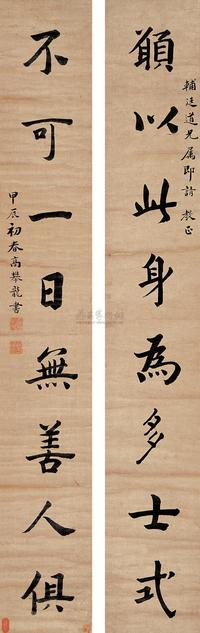 輔廷道兄属即請教正
願以此身為多士式
不可一日無善人俱
甲辰初春高攀龍書